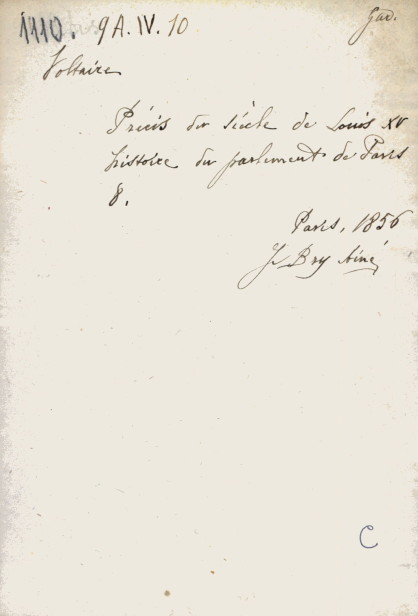 1110. 9A. IV. 10
Gad.
Voltaire
Précis du siècle de Louis XV
histoire du parlement de Paris
8.
Paris, 1856
J Bry Ainé
C